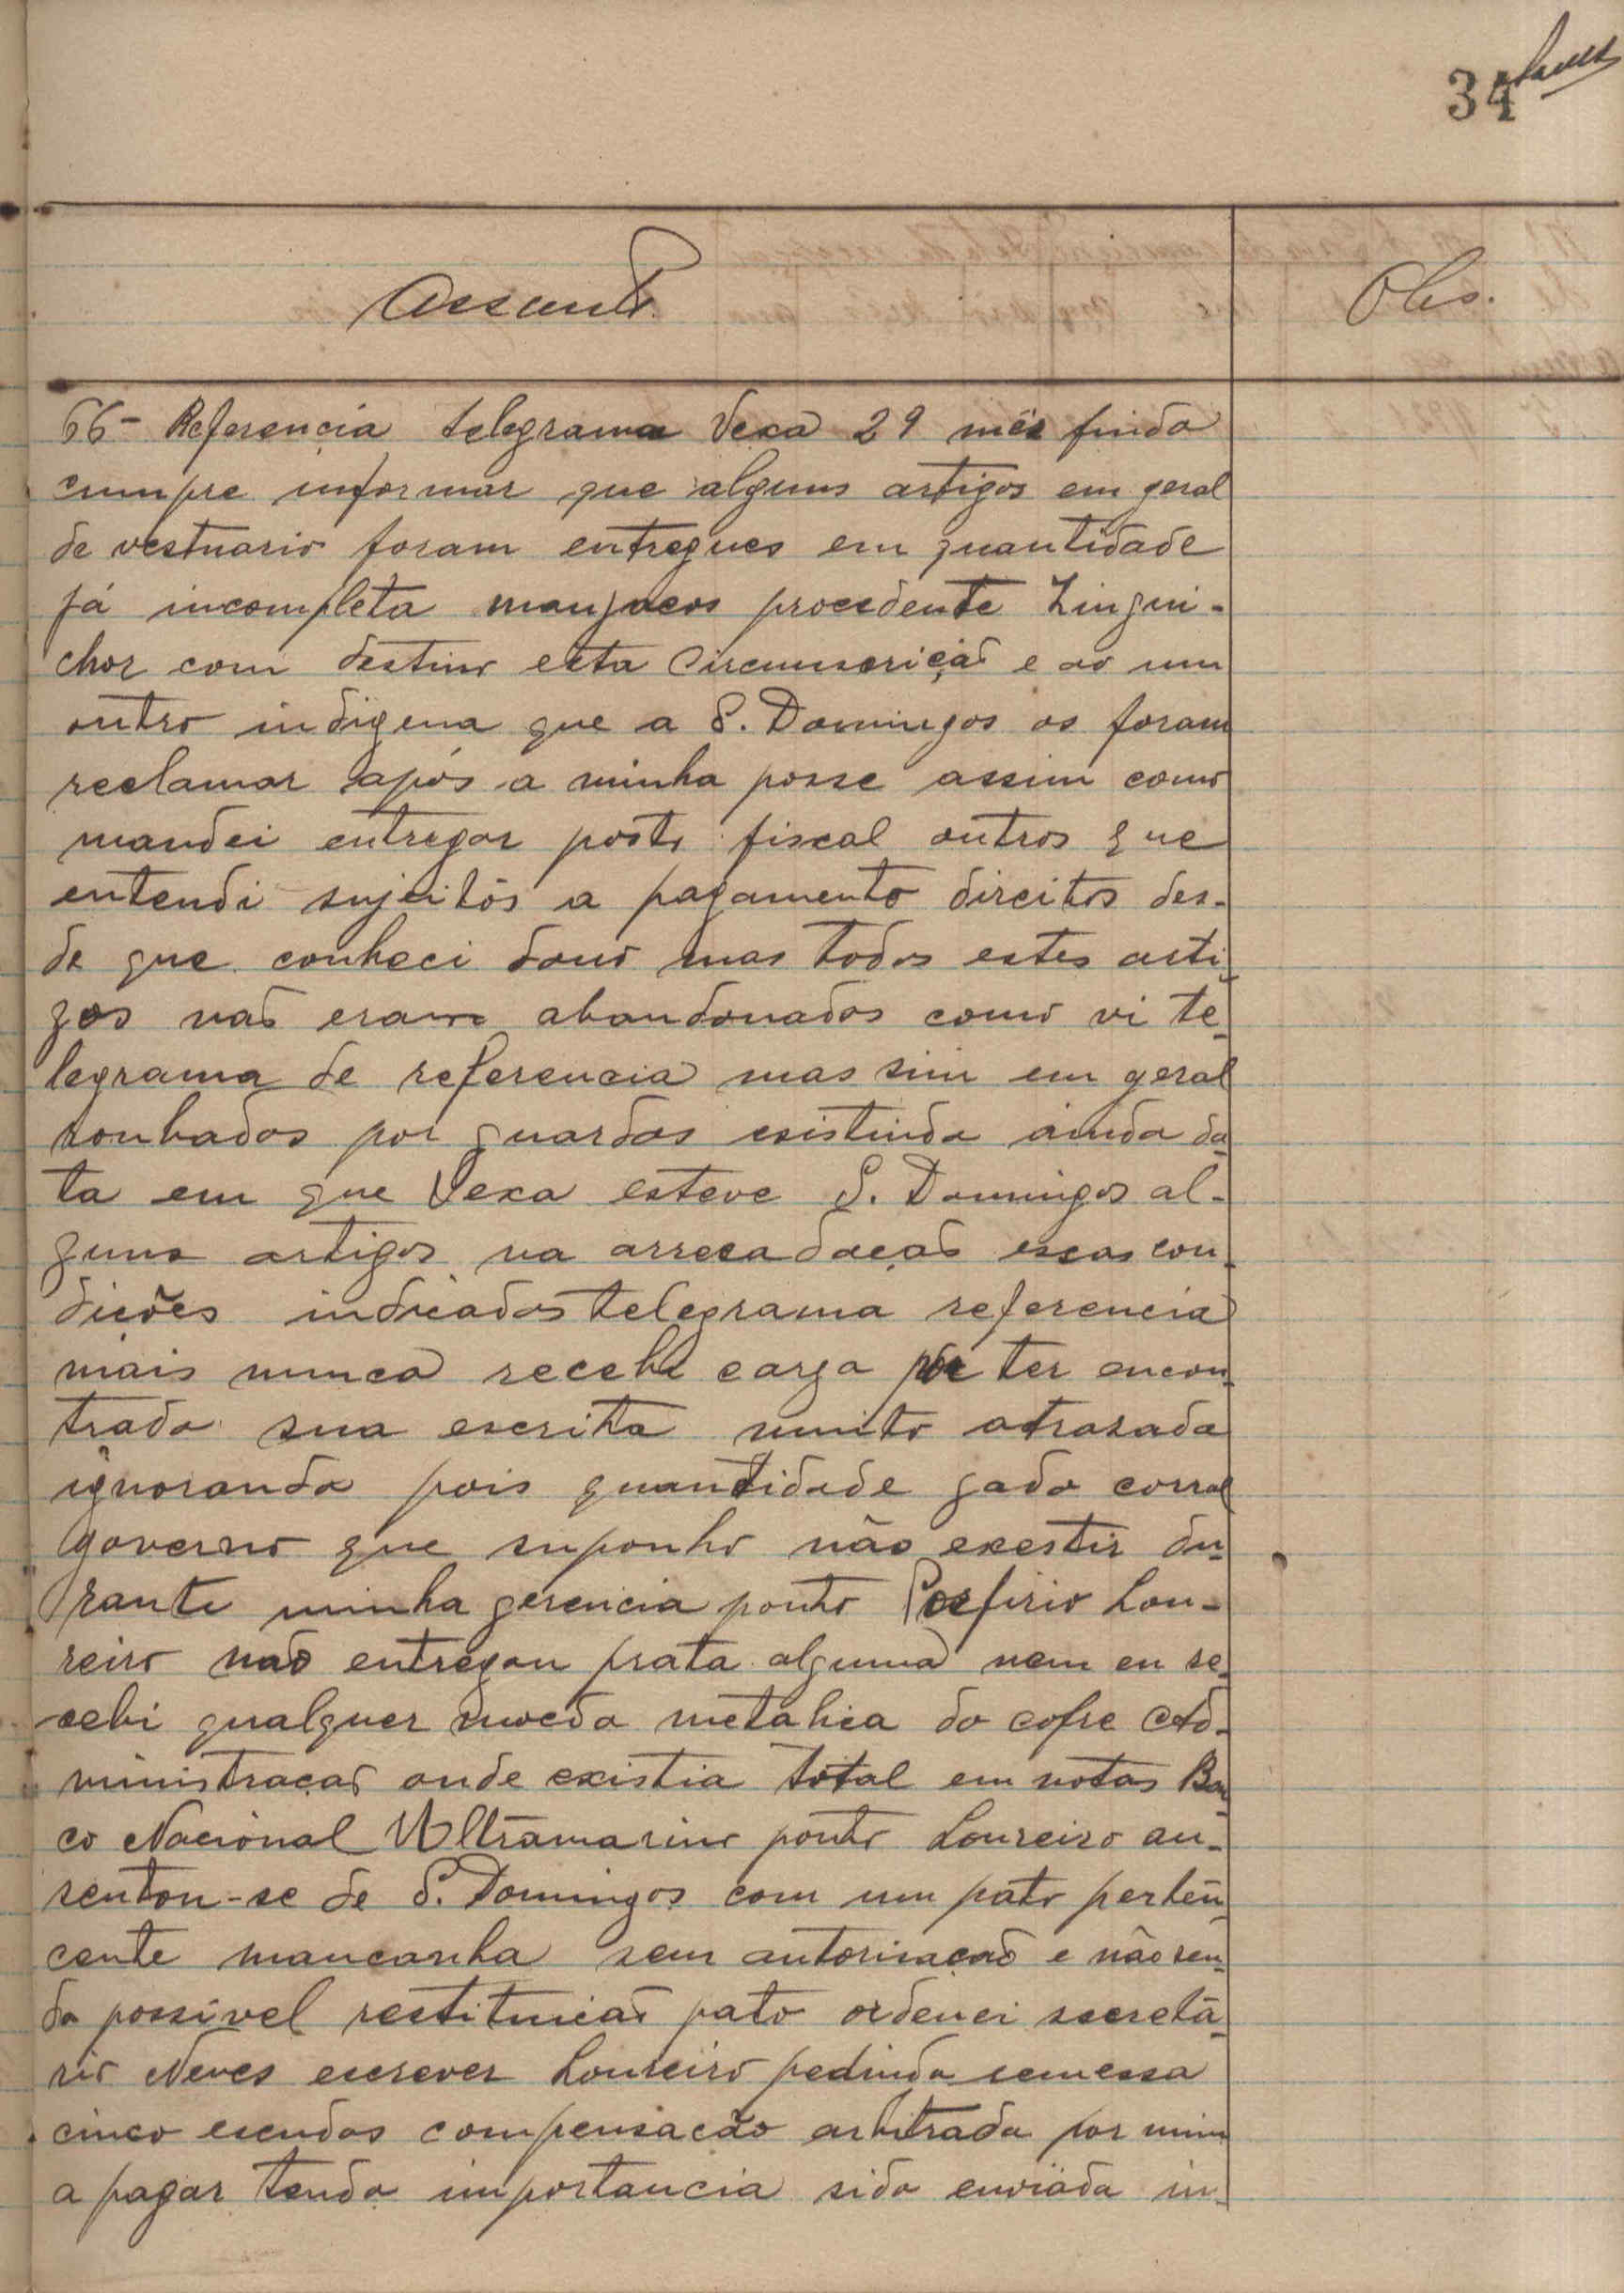 34
Assunto
Obs.
66- Referencia telegrama Vexa 29 mês findo
cumpre informar que alguns artigos em geral
de vestuario foram entregues em quantidade
já incompleta manjacos procedente Zingui-
chor com destino esta Circunscrição e ao um
outro indigena que a S. Domingos os foram
reclamar após a minha posse assim como
mandei entregar posto fiscal outros que
entendi sujeitos a pagamento direitos des-
de que conheci dono mas todos estes arti-
gos não eram abandonados como vi te-
legrama de referencia mas sim em geral
roubados por guardas existindo ainda da-
ta em que Vexa esteve S. Domingos al-
guns artigos na arrecadação essas con-
dições indicadas telegrama referencia
mais nunca recebi carga por ter encon-
trado sua escrita muito atrazada
ignorando pois quantidade gado corral
governo que suponho não exestir du-
rante minha gerencia ponto Porfirio Lou-
reiro não entregou prata alguma nem eu re-
cebi qualquer moeda metalica do cofre Ad-
ministração onde existia total em notas Ban-
co Nacional Ultramarino ponto Loureiro au-
sentou-se de S. Domingos com um pato perten-
cente mancanha sem autorisação e não sen-
do possivel restituição pato ordenei secretá-
rio Neves escrever Loureiro pedindo remessa
cinco escudos compensação arbitrada por mim
a pagar tendo importancia sido enviada in-